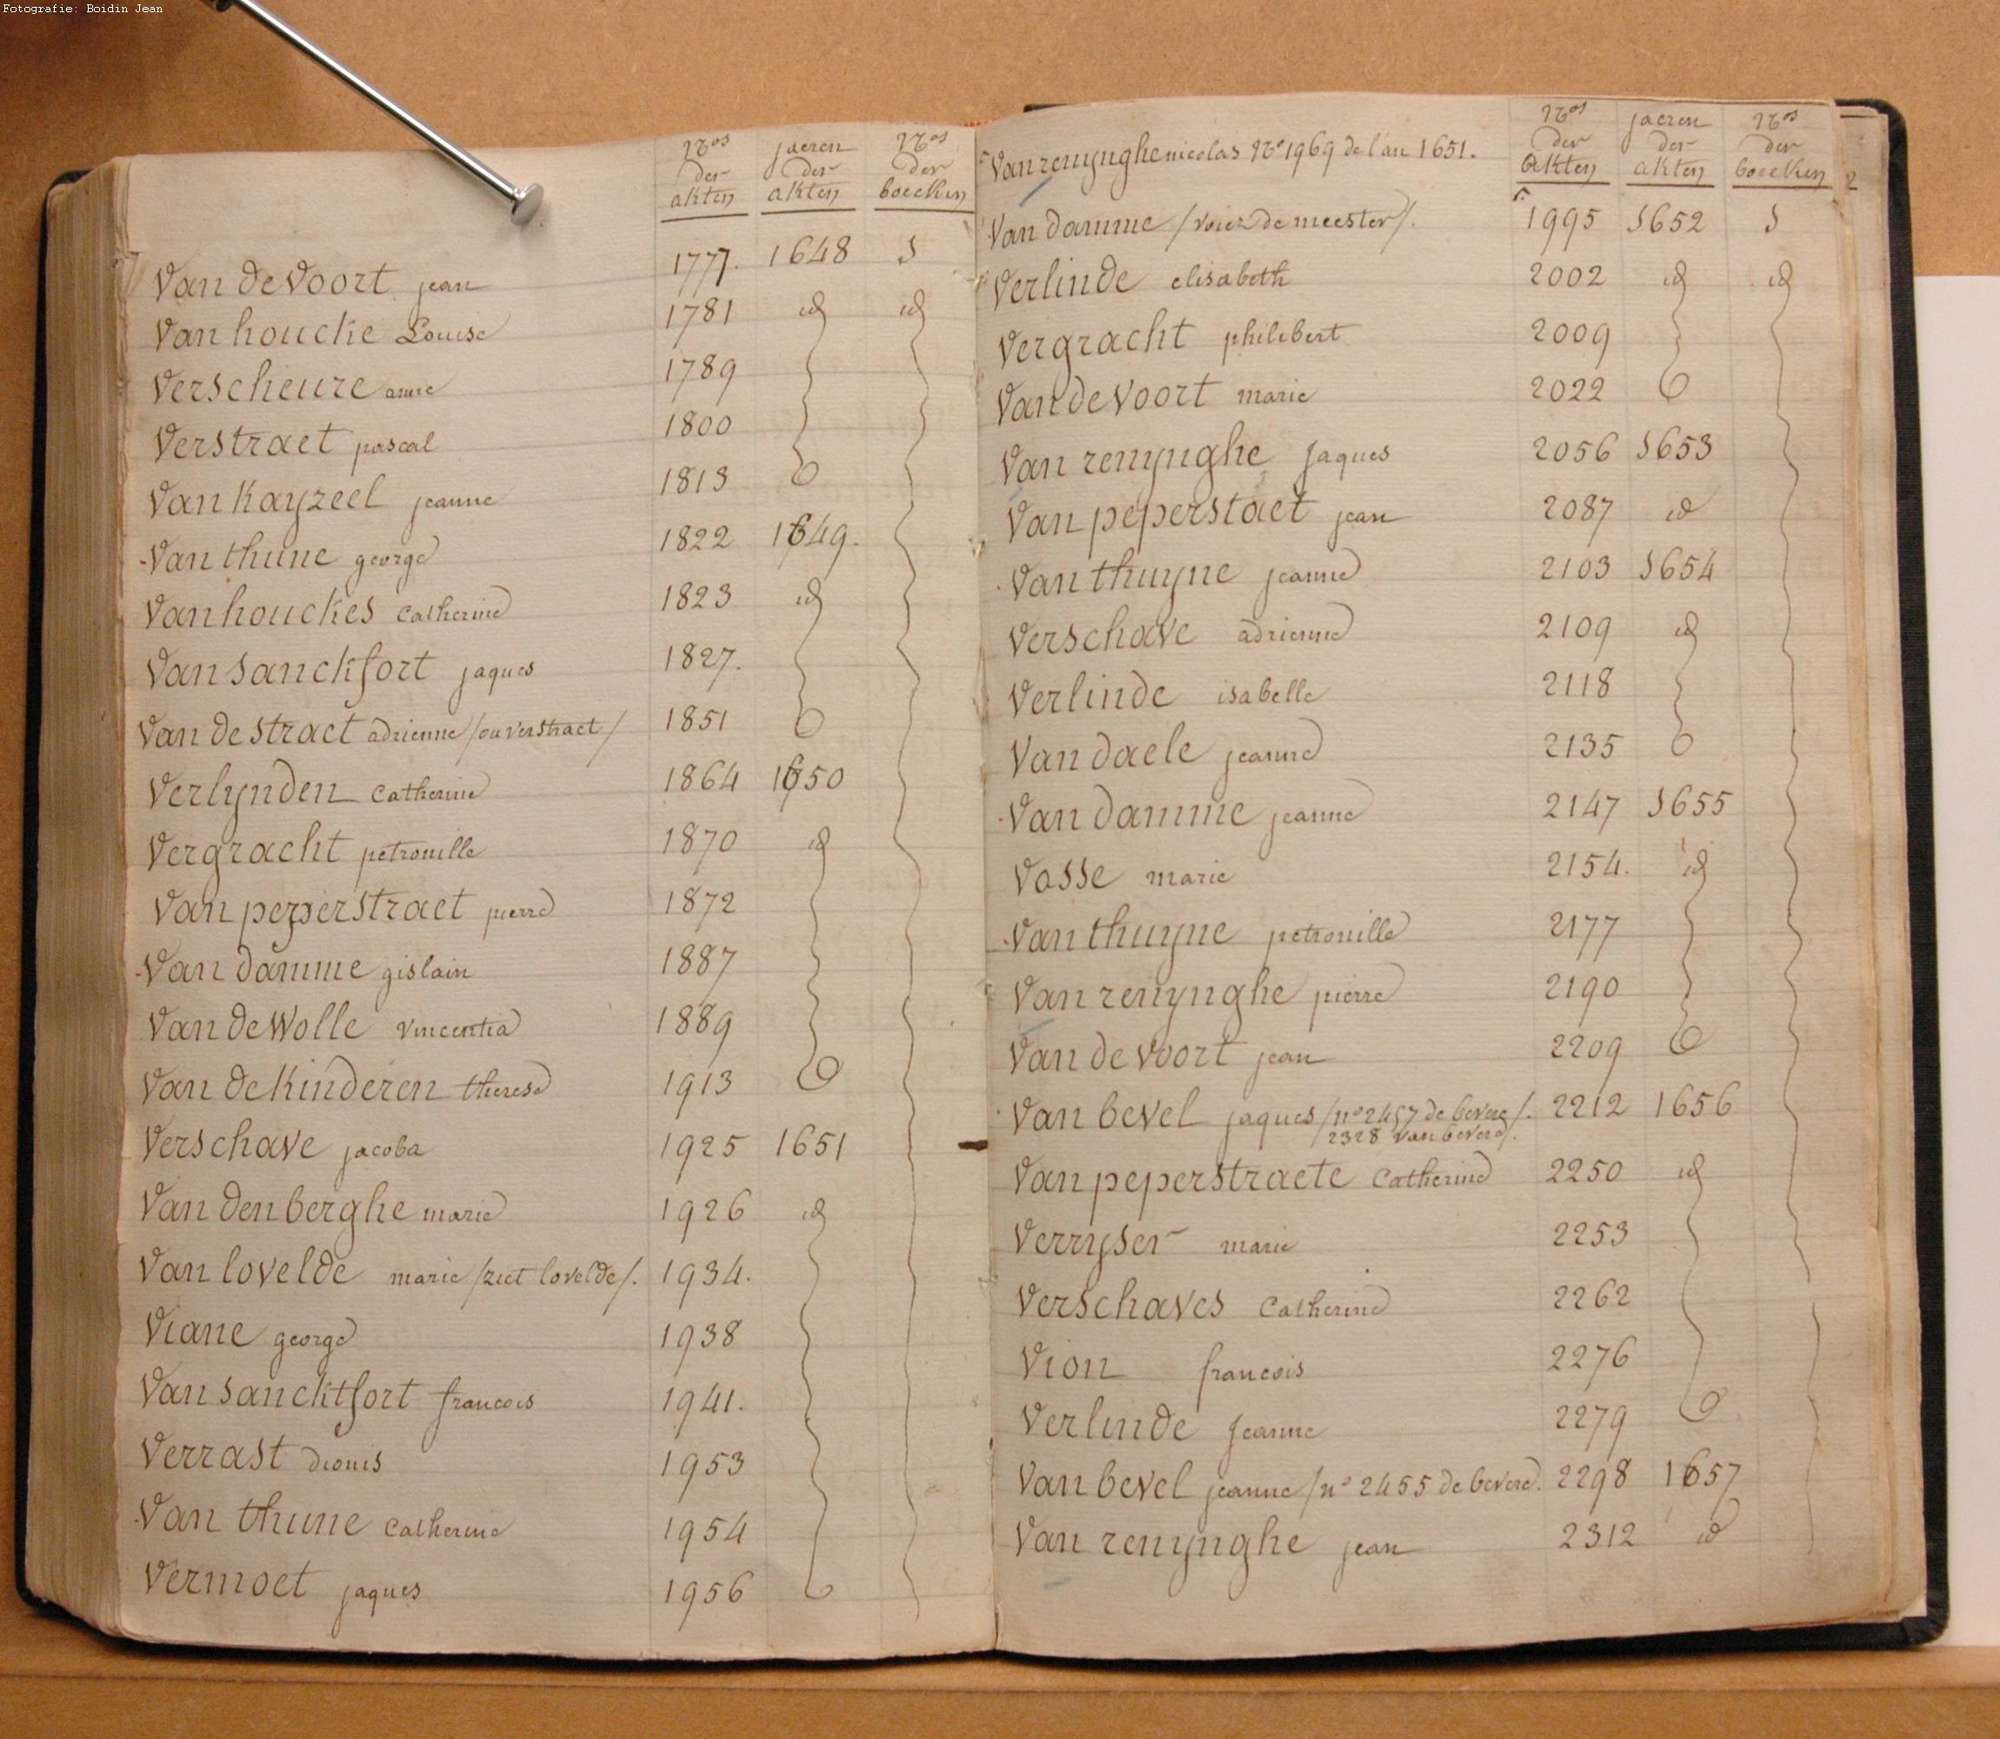 Fotografie: Boidin Jean
Nos der akten jaeren der akten Nos der boecken
Van de voort jean 1777. 1648 1
Van houcke Louise 1781 id id
Verscheure anne 1789
Verstraet pascal 1800
Van Kayzeel jeanne 1813
Van thune george 1822 1649.
Van houckes Catherine 1823 id
Van sanckfort jaques 1827.
Van de straet adrienne /ou verstraet/ 1851
Verlynden Catherine 1864 1650
Vergracht petronille 1870 id
Van peperstraet pierre 1872
Van damme gislain 1887
Van de Wolle Vincentia 1889
Van de Kinderen therese 1913
Verschave jacoba 1925 1651
Van den berghe marie 1926 id
Van lovelde marie /ziet lovelde/. 1934.
Viane george 1938
Van sancktfort francois 1941.
Verrast dionis 1953
Van thune Catherine 1954
Vermoet jaques 1956
Van renynghe nicolas No 1969 de l'an 1651.
Nos der akten jaeren der akten Nos der boecken
Van damme /voiez de meester/. 1995 1652 1
Verlinde elisabeth 2002 id id
Vergracht philibert 2009
Van de voort marie 2022
Van renynghe jaques 2056 1653
Van peperstaet jean 2087 id
Van thuyne jeanne 2103 1654
Verschave adrienne 2109 id
Verlinde isabelle 2118
Van daele jeanne 2135
Van damme jeanne 2147 1655
Vasse marie 2154. id
Van thuyne petronille 2177
Van renynghe pierre 2190
Van de voort jean 2209
Van bevel jaques /no 2457 de bevere/. 2212 1656
2328 van bevere/.
Van peperstraete Catherine 2250 id
Verryser marie 2253
Verschaves Catherine 2262
Vion francois 2276
Verlinde Jeanne 2279
Van bevel jeanne /no 2455 de bevere. 2298 1657
Van renynghe jean 2312 id